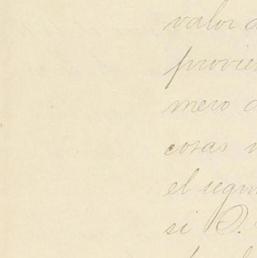 valor
provie
mero
cosas
el segun
si D.